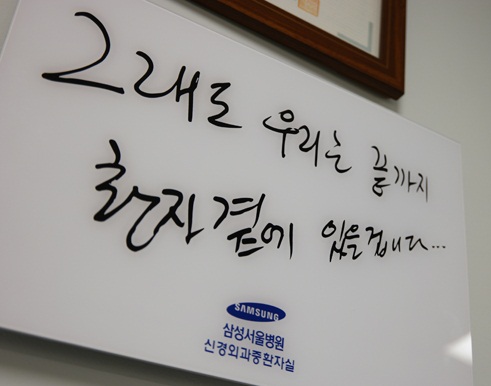 그래도 우리는 끝까지
환자곁에 있을겁니다...
SAMSUNG
삼성서울병원
신경외과중환자실